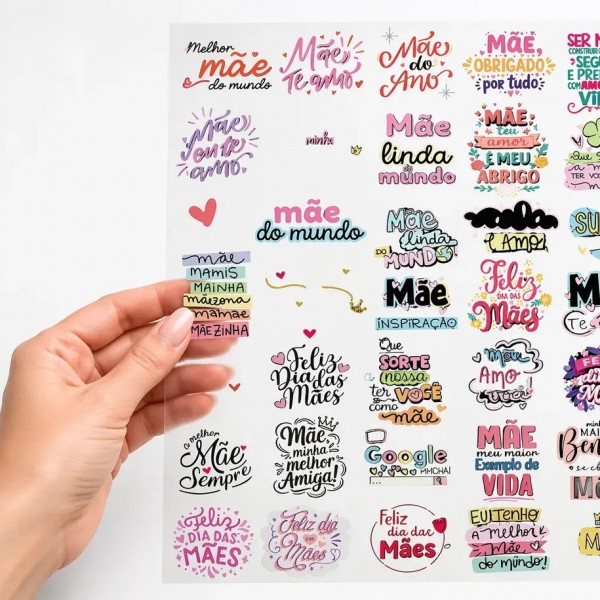 Melhor
mãe
do mundo
Mãe
Te amo
Mãe
do
Ano
MÃE,
OBRIGADO
por tudo
SER M
CONSTRUIR
SEGU
E PRE
COM AMO
VID
Mãe
eu te
amo
minha
Mãe
linda
do
mundo
MÃE
teu
amor
É MEU
ABRIGO
Que S
TER VOC
mãe
do mundo
Mãe
linda
DO
MUNDO
SU
mãe
MAMIS
MAINHA
mãezona
mamãe
MÃEZINHA
Mãe
INSPIRAÇÃO
Feliz
DIA DAS
Mães
M
Te
Feliz
Dia das
Mães
Que
SORTE
a nossa
ter VOCÊ
como
mãe
Mãe
Amo
você!
FE
di
M
a melhor
Mãe
Sempre
Mãe
minha
melhor
Amiga!
Google
MÃE
meu maior
Exemplo de
VIDA
minh
MAI
Ben
Mã
Feliz
DIA DAS
MÃES
Feliz dia
das
Mães
Feliz
dia das
Mães
EU TENHO
a melhor
Mãe
do mundo!
M